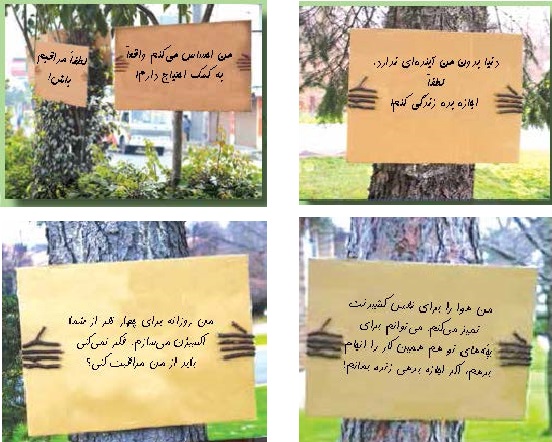 لطفاً مراقبم
باش!
من احساس می‌کنم واقعاً
به کمک احتیاج دارم!
دنیا بدون من آینده‌ای ندارد.
لطفاً
اجازه بده زندگی کنم!
من روزانه برای چهار نفر از شما
اکسیژن می‌سازم. فکر نمی‌کنی
باید از من مراقبت کنی؟
من هوا را برای نفس کشیدنت
تمیز می‌کنم. می‌توانم برای
بچه‌های تو هم همین کار را انجام
بدهم، اگر اجازه بدهی زنده بمانم!